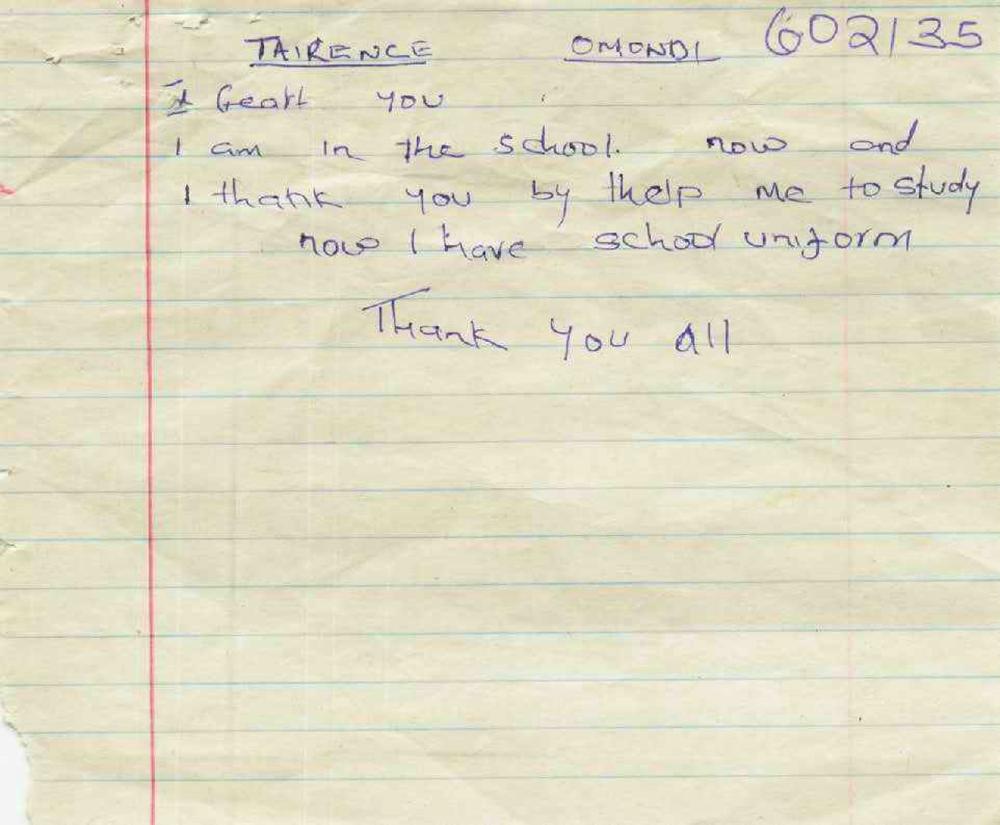 TAIRENCE OMONDI 602135
I Geatt you
I am in the school. now and
I thank you by thelp me to study
now I have school uniform
Thank you all